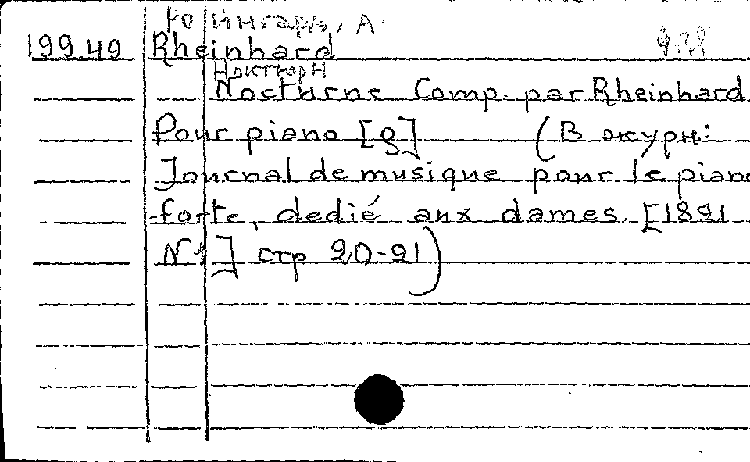 Рейнгард, А
199.49 Rheinhard 9.28
Ноктюрн
Nocturne Comp. par Rheinhard
Pour piano [g] (В журн:
Journal de musique pour le piano
-forte, dedié aux dames [1821
N1] стр 20-21)